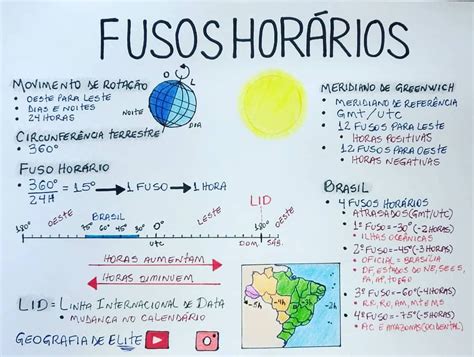 FUSOS HORÁRIOS
MOVIMENTO DE ROTAÇÃO
• OESTE PARA LESTE
• DIAS E NOITES
• 24 HORAS
O L
NOITE
DIA
CIRCUNFERÊNCIA TERRESTRE
• 360°
FUSO HORÁRIO
• 360° = 15° → 1 FUSO → 1 HORA
24H
MERIDIANO DE GREENWICH
• MERIDIANO DE REFERÊNCIA
• GMT/UTC
• 12 FUSOS PARA LESTE
HORAS POSITIVAS
• 12 FUSOS PARA OESTE
HORAS NEGATIVAS
LID
180° OESTE BRASIL 0° LESTE 180° OESTE
75° 45° 30°
UTC DOM SÁB.
HORAS AUMENTAM
HORAS DIMINUEM
LID = LINHA INTERNACIONAL DE DATA
• MUDANÇA NO CALENDÁRIO
GEOGRAFIA DE ELITE
-5H -4H -3H
BRASIL
• 4 FUSOS HORÁRIOS
• ATRASADOS (GMT/UTC)
1º FUSO = -30° (-2 HORAS)
• ILHAS OCEÂNICAS
2º FUSO = -45° (-3 HORAS)
• OFICIAL = BRASÍLIA
• DF, ESTADOS DO NE, SE, S,
PA, AP, TO e GO
3º FUSO = -60° (-4 HORAS)
• RR, RO, AM, MT e MS
4º FUSO = -75° (-5 HORAS)
• AC E AMAZONAS (OCIDENTAL)